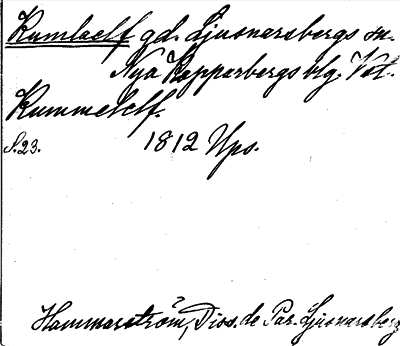 Rumlaelf gd. Ljusnarsbergs sn.
Nya Kopparbergs blg. Vstl.
Rummelelf.
S. 23. 1812 Ups.
Hammarström, Diss. de Par. Ljusnarsberg